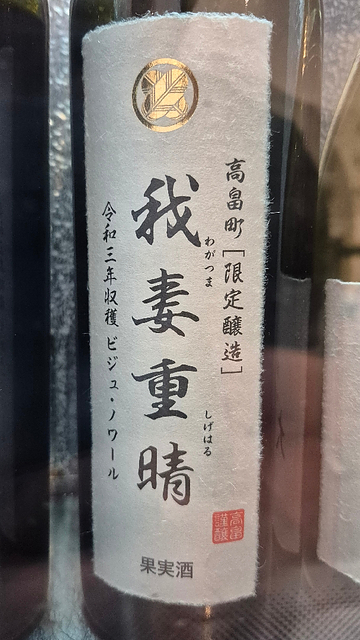 高畠町［限定醸造］
我妻重晴
わがつま
しげはる
令和三年収穫 ビジュ・ノワール
果実酒